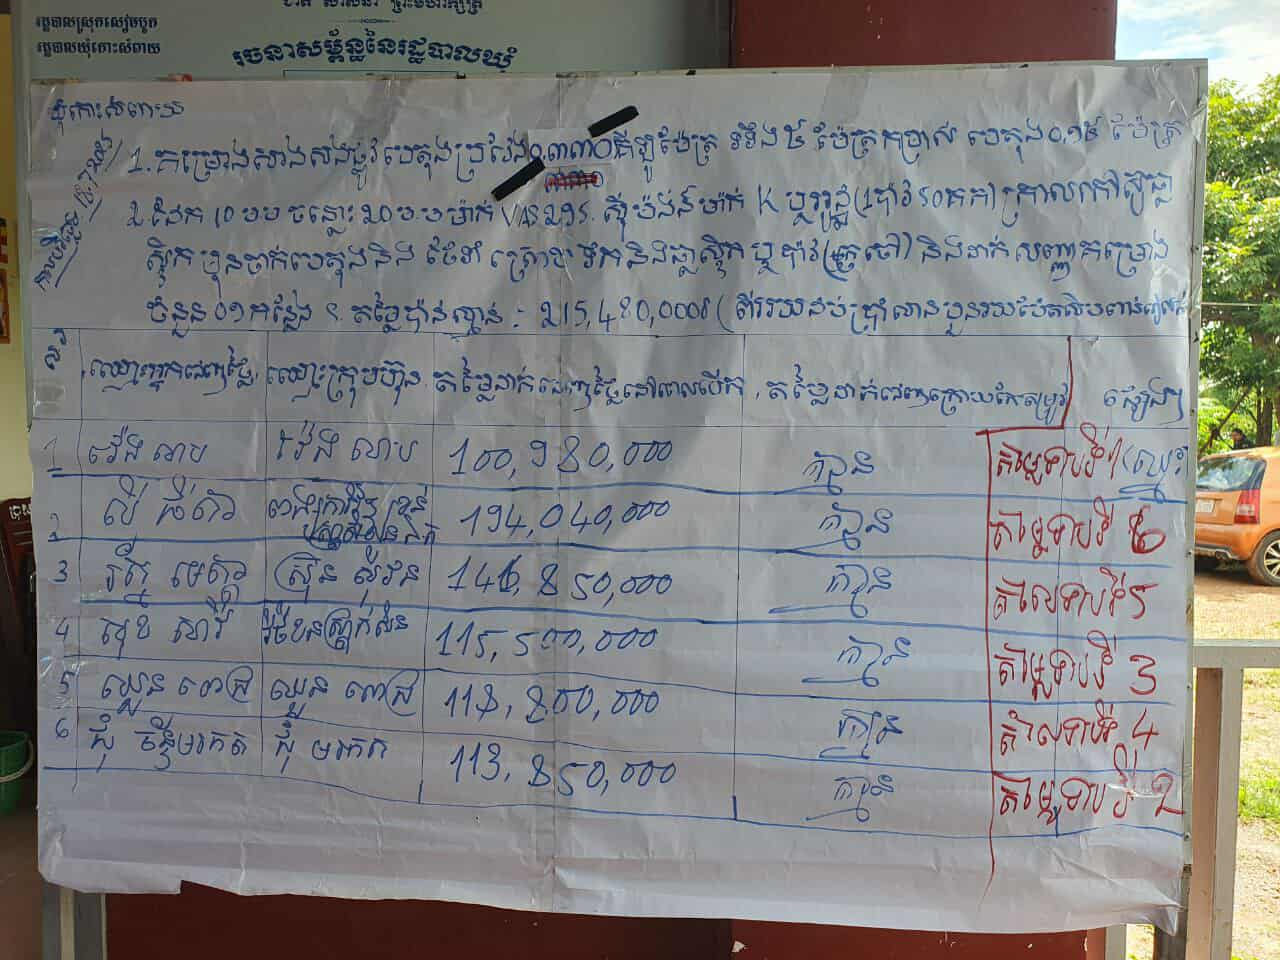 ជាតិ សាសនា ព្រះមហាក្សត្រ
រដ្ឋបាលស្រុកសៀមបូក
រដ្ឋបាលឃុំកោះសំពាយ
រចនាសម្ព័ន្ធនៃរដ្ឋបាលឃុំ
ឃុំកោះសំពាយ
1. គម្រោងសាងសង់ផ្លូវបេតុងប្រវែង 0,៣៣០ គីឡូម៉ែត្រ ទទឹង ៥ ម៉ែត្រ កម្រាស់ បេតុង 0.១៥ ម៉ែត្រ
2. ដែក 10 មម ចន្លោះ 20 ម.ម ម៉ាក់ VAS 295. ស៊ីម៉ង់ត៍ ម៉ាក់ K (1បាវ 50គក) ក្រាលកៅស៊ូ
បេតុងនិង ថែទាំ ស្រោចទឹក និង និងដាក់ សញ្ញាគម្រោង
ចំនួន 0១ កន្លែង ។ តម្លៃប៉ាន់ស្មាន : 215,480,000៛ (ពីររយដប់ប្រាំលានបួនរយប៉ែតសិបពាន់រៀល
ល.រ ឈ្មោះអ្នកដេញថ្លៃ ឈ្មោះក្រុមហ៊ុន តម្លៃដាក់ដេញថ្លៃនៅពេលបើក តម្លៃដាក់ដេញក្រោយកែតម្រូវ ផ្សេងៗ
1 វ៉េង សាប វ៉េង សាប 100,980,000 គ្មាន តម្លៃទាបទី 1 (ឈ្នះ)
2 លី ធីតា 194,040,000 គ្មាន តម្លៃទាបទី 6
3 ស៊្រុន 146,850,000 គ្មាន តម្លៃទាបទី 5
4 សុខ សារី 115,500,000 គ្មាន តម្លៃទាបទី 3
5 ឈួន ពេជ្រ ឈួន ពេជ្រ 118,800,000 គ្មាន តម្លៃទាបទី 4
6 ជុំ ច័ន្ទមរកត ជុំ មរកត 113,850,000 គ្មាន តម្លៃទាបទី 2